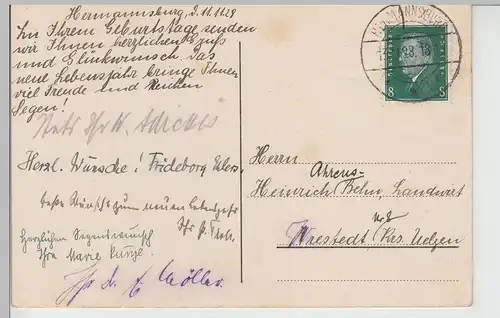 Hermannsburg, d. 11.11.28
Zu Ihrem Geburtstage senden
wir Ihnen herzlichen Gruß
und Glückwunsch. Das
neue Lebensjahr bringe Ihnen
viel Freude und Reichen
Segen!
Herzl. Wünsche! Frideborg
beste Wünsche zum neuen Lebensjahr
Herzlichen Segenswunsch
Ihre Marie
Ihr Möller
HERMANNSBURG
8 8
Herrn
Ahrens-
Heinrich Behn, Landwirt
Wrestedt, Krs. Uelzen